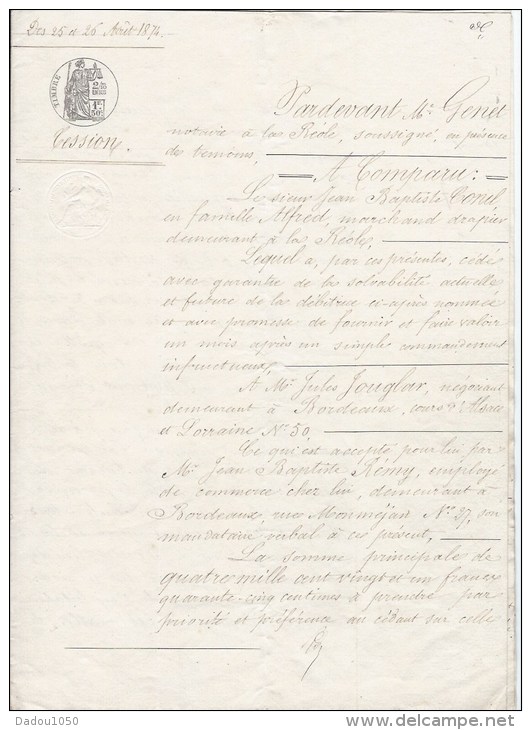 Des 25 et 26 Août 1874.
TIMBRE
1F
50c
Cession.
Pardevant Me Genêt
notaire à la Réole, soussigné, en présence
de temoins,
A Comparu:
Le sieur Jean Baptiste
en famille Alfred, marchand drapier
demeurant à la Réole,
Lequel a, par ces présentes, cédé
avec garantie de la solvabilité actuelle
et future de la débitrice ci-après nommée
et avec promesse de fournir et faire valoir
un mois après un simple commandement
infructueux,
A Mr Jules Jouglar, négociant
demeurant à Bordeaux, cours d'Alsace
et Lorraine No 50
Ce qui est accepté pour lui par
Mr Jean Baptiste Rémy, employé
de commerce chez lui, demeurant à
Bordeaux, rue Monméjan No 27, son
mandataire verbal à ces présent,
La somme principale de
quatre mille cent vingt et un francs
quarante-cinq centimes à prendre par
priorité et préférence au cédant sur celle
Dadou1050
delcampe.net